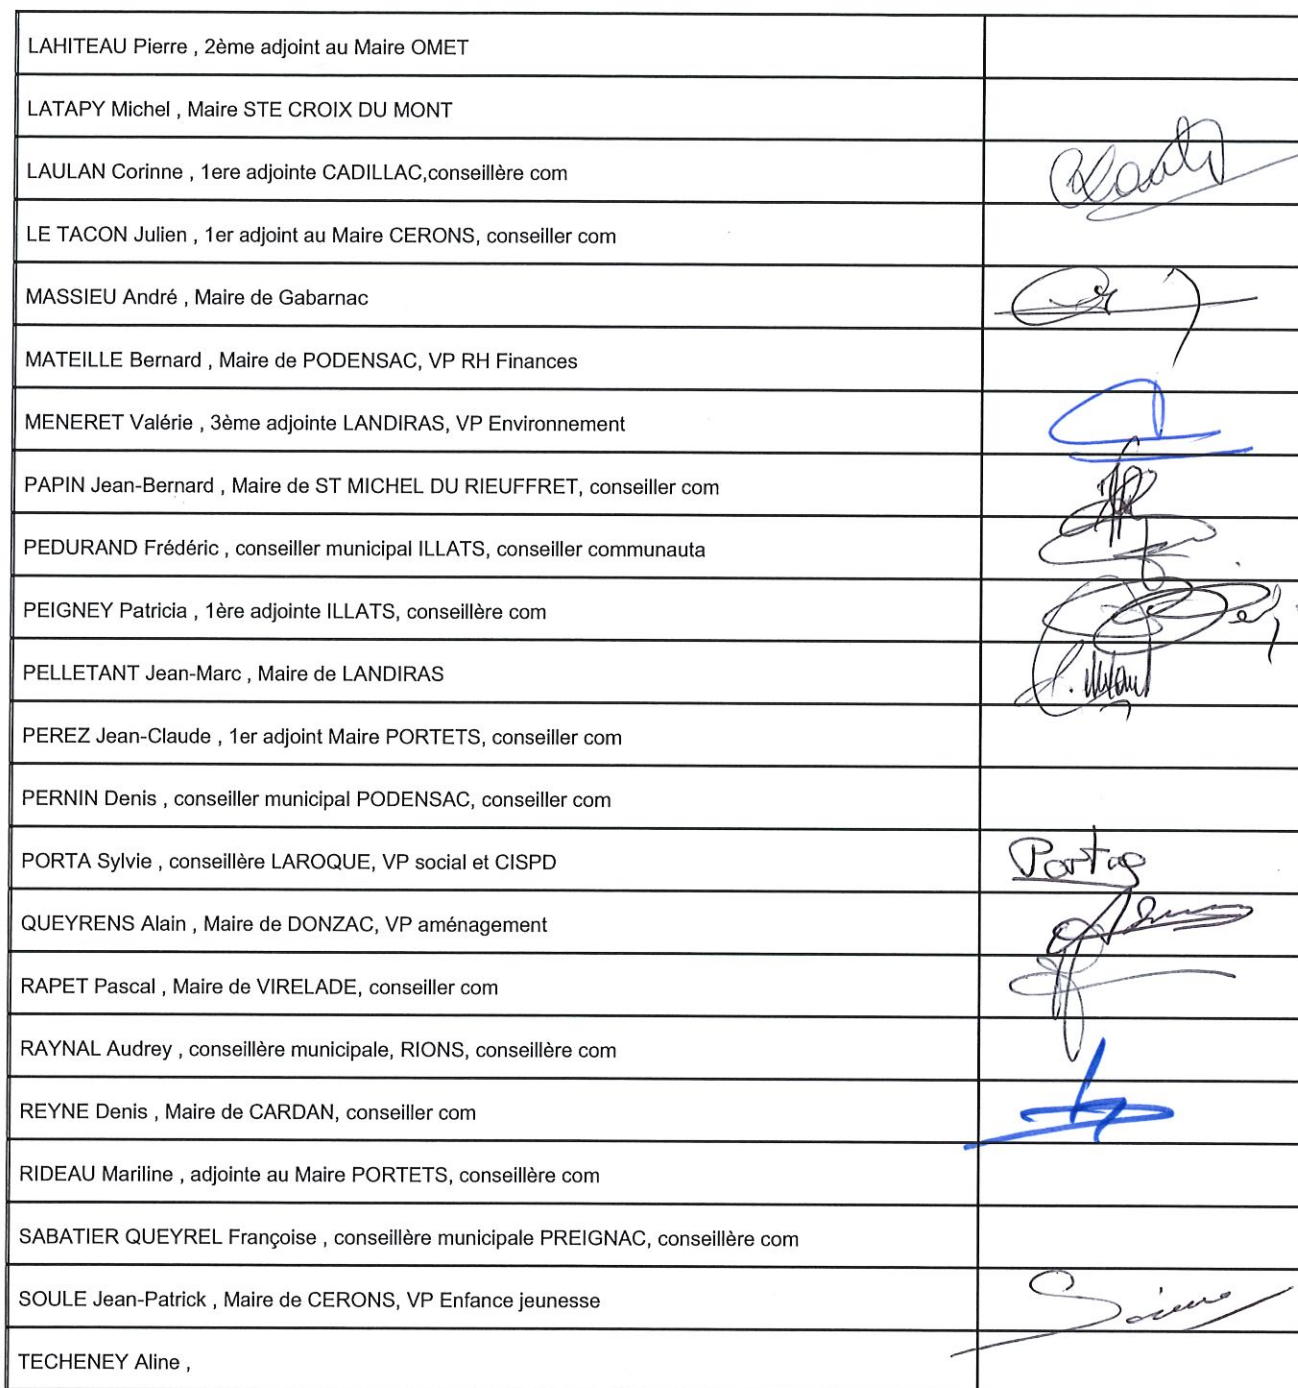 LAHITEAU Pierre , 2ème adjoint au Maire OMET
LATAPY Michel , Maire STE CROIX DU MONT
LAULAN Corinne , 1ere adjointe CADILLAC,conseillère com
LE TACON Julien , 1er adjoint au Maire CERONS, conseiller com
MASSIEU André , Maire de Gabarnac
MATEILLE Bernard , Maire de PODENSAC, VP RH Finances
MENERET Valérie , 3ème adjointe LANDIRAS, VP Environnement
PAPIN Jean-Bernard , Maire de ST MICHEL DU RIEUFFRET, conseiller com
PEDURAND Frédéric , conseiller municipal ILLATS, conseiller communauta
PEIGNEY Patricia , 1ère adjointe ILLATS, conseillère com
PELLETANT Jean-Marc , Maire de LANDIRAS
PEREZ Jean-Claude , 1er adjoint Maire PORTETS, conseiller com
PERNIN Denis , conseiller municipal PODENSAC, conseiller com
PORTA Sylvie , conseillère LAROQUE, VP social et CISPD
QUEYRENS Alain , Maire de DONZAC, VP aménagement
RAPET Pascal , Maire de VIRELADE, conseiller com
RAYNAL Audrey , conseillère municipale, RIONS, conseillère com
REYNE Denis , Maire de CARDAN, conseiller com
RIDEAU Mariline , adjointe au Maire PORTETS, conseillère com
SABATIER QUEYREL Françoise , conseillère municipale PREIGNAC, conseillère com
SOULE Jean-Patrick , Maire de CERONS, VP Enfance jeunesse
TECHENEY Aline ,